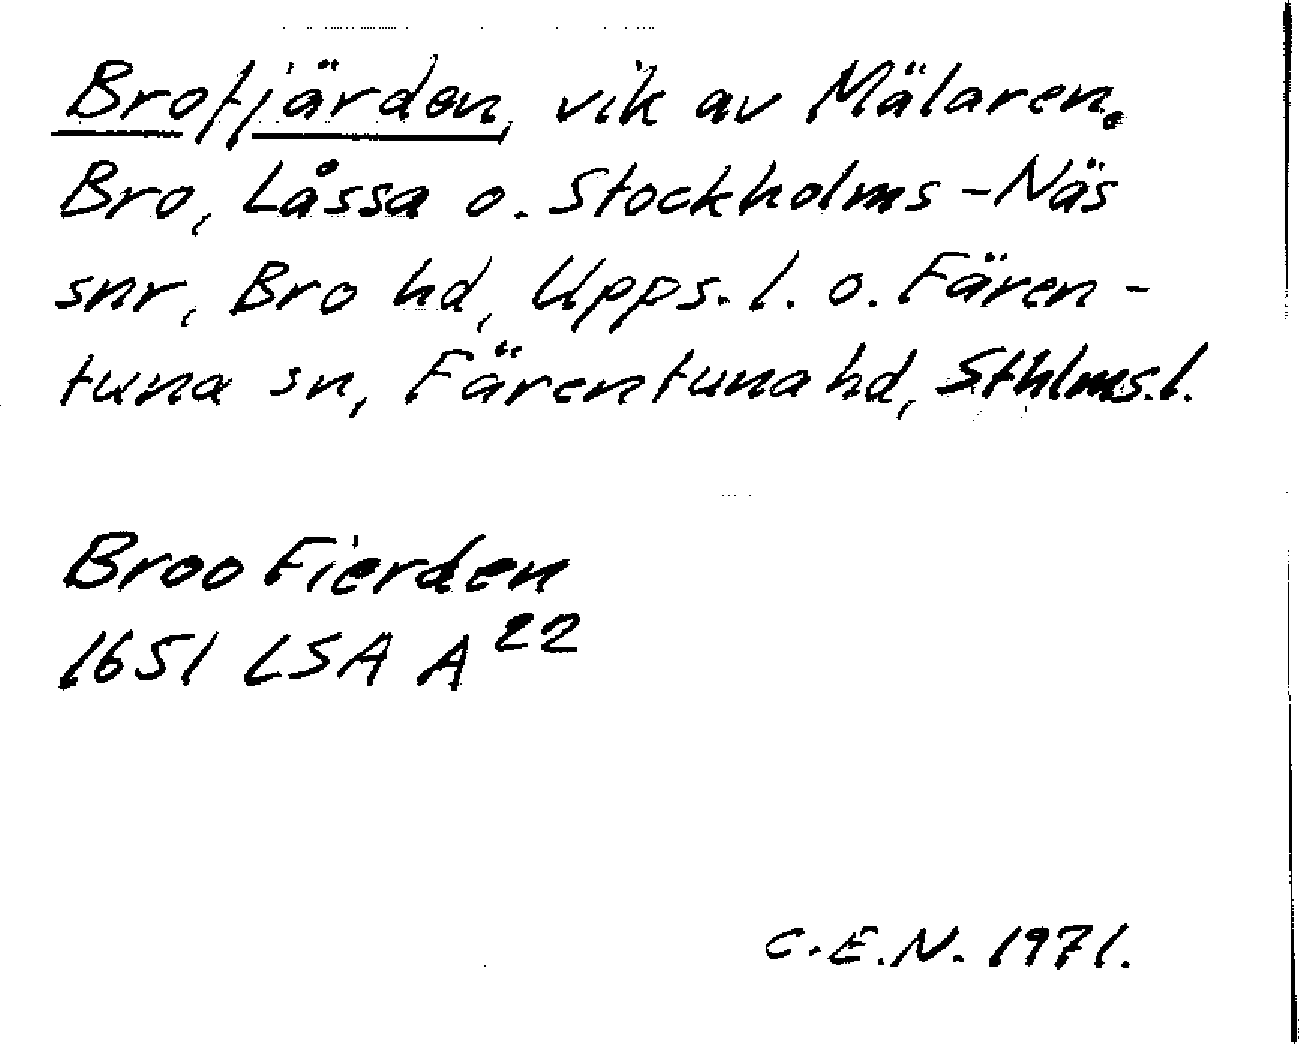 Brofjärden, vik av Mälaren.
Bro, Låssa o. Stockholms-Näs
snr, Bro hd, Upps. l. o. Fären-
tuna sn, Färentuna hd, Sthlms.l.
Broo Fierden
1651 LSA A 22
C.E.N. 1971.